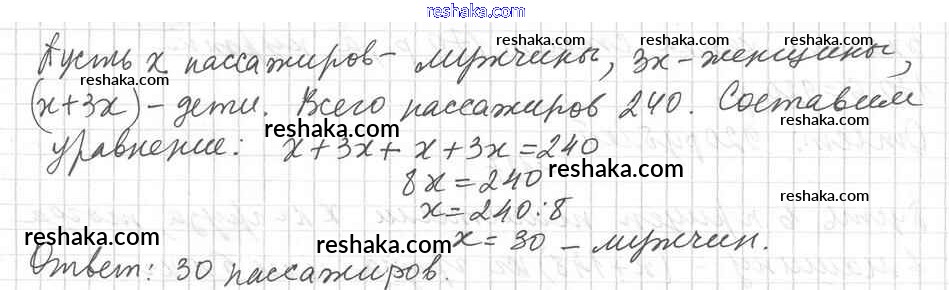 reshaka.com
Пусть x пассажиров - мужчины, 3x - женщины,
(x+3x) - дети. Всего пассажиров 240. Составим
уравнение: x+3x+x+3x=240
8x=240
x=240:8
x=30 - мужчин.
Ответ: 30 пассажиров.
reshaka.com
reshaka.com
reshaka.com
reshaka.com
reshaka.com
reshaka.com
reshaka.com
reshaka.com
reshaka.com
reshaka.com
reshaka.com
reshaka.com